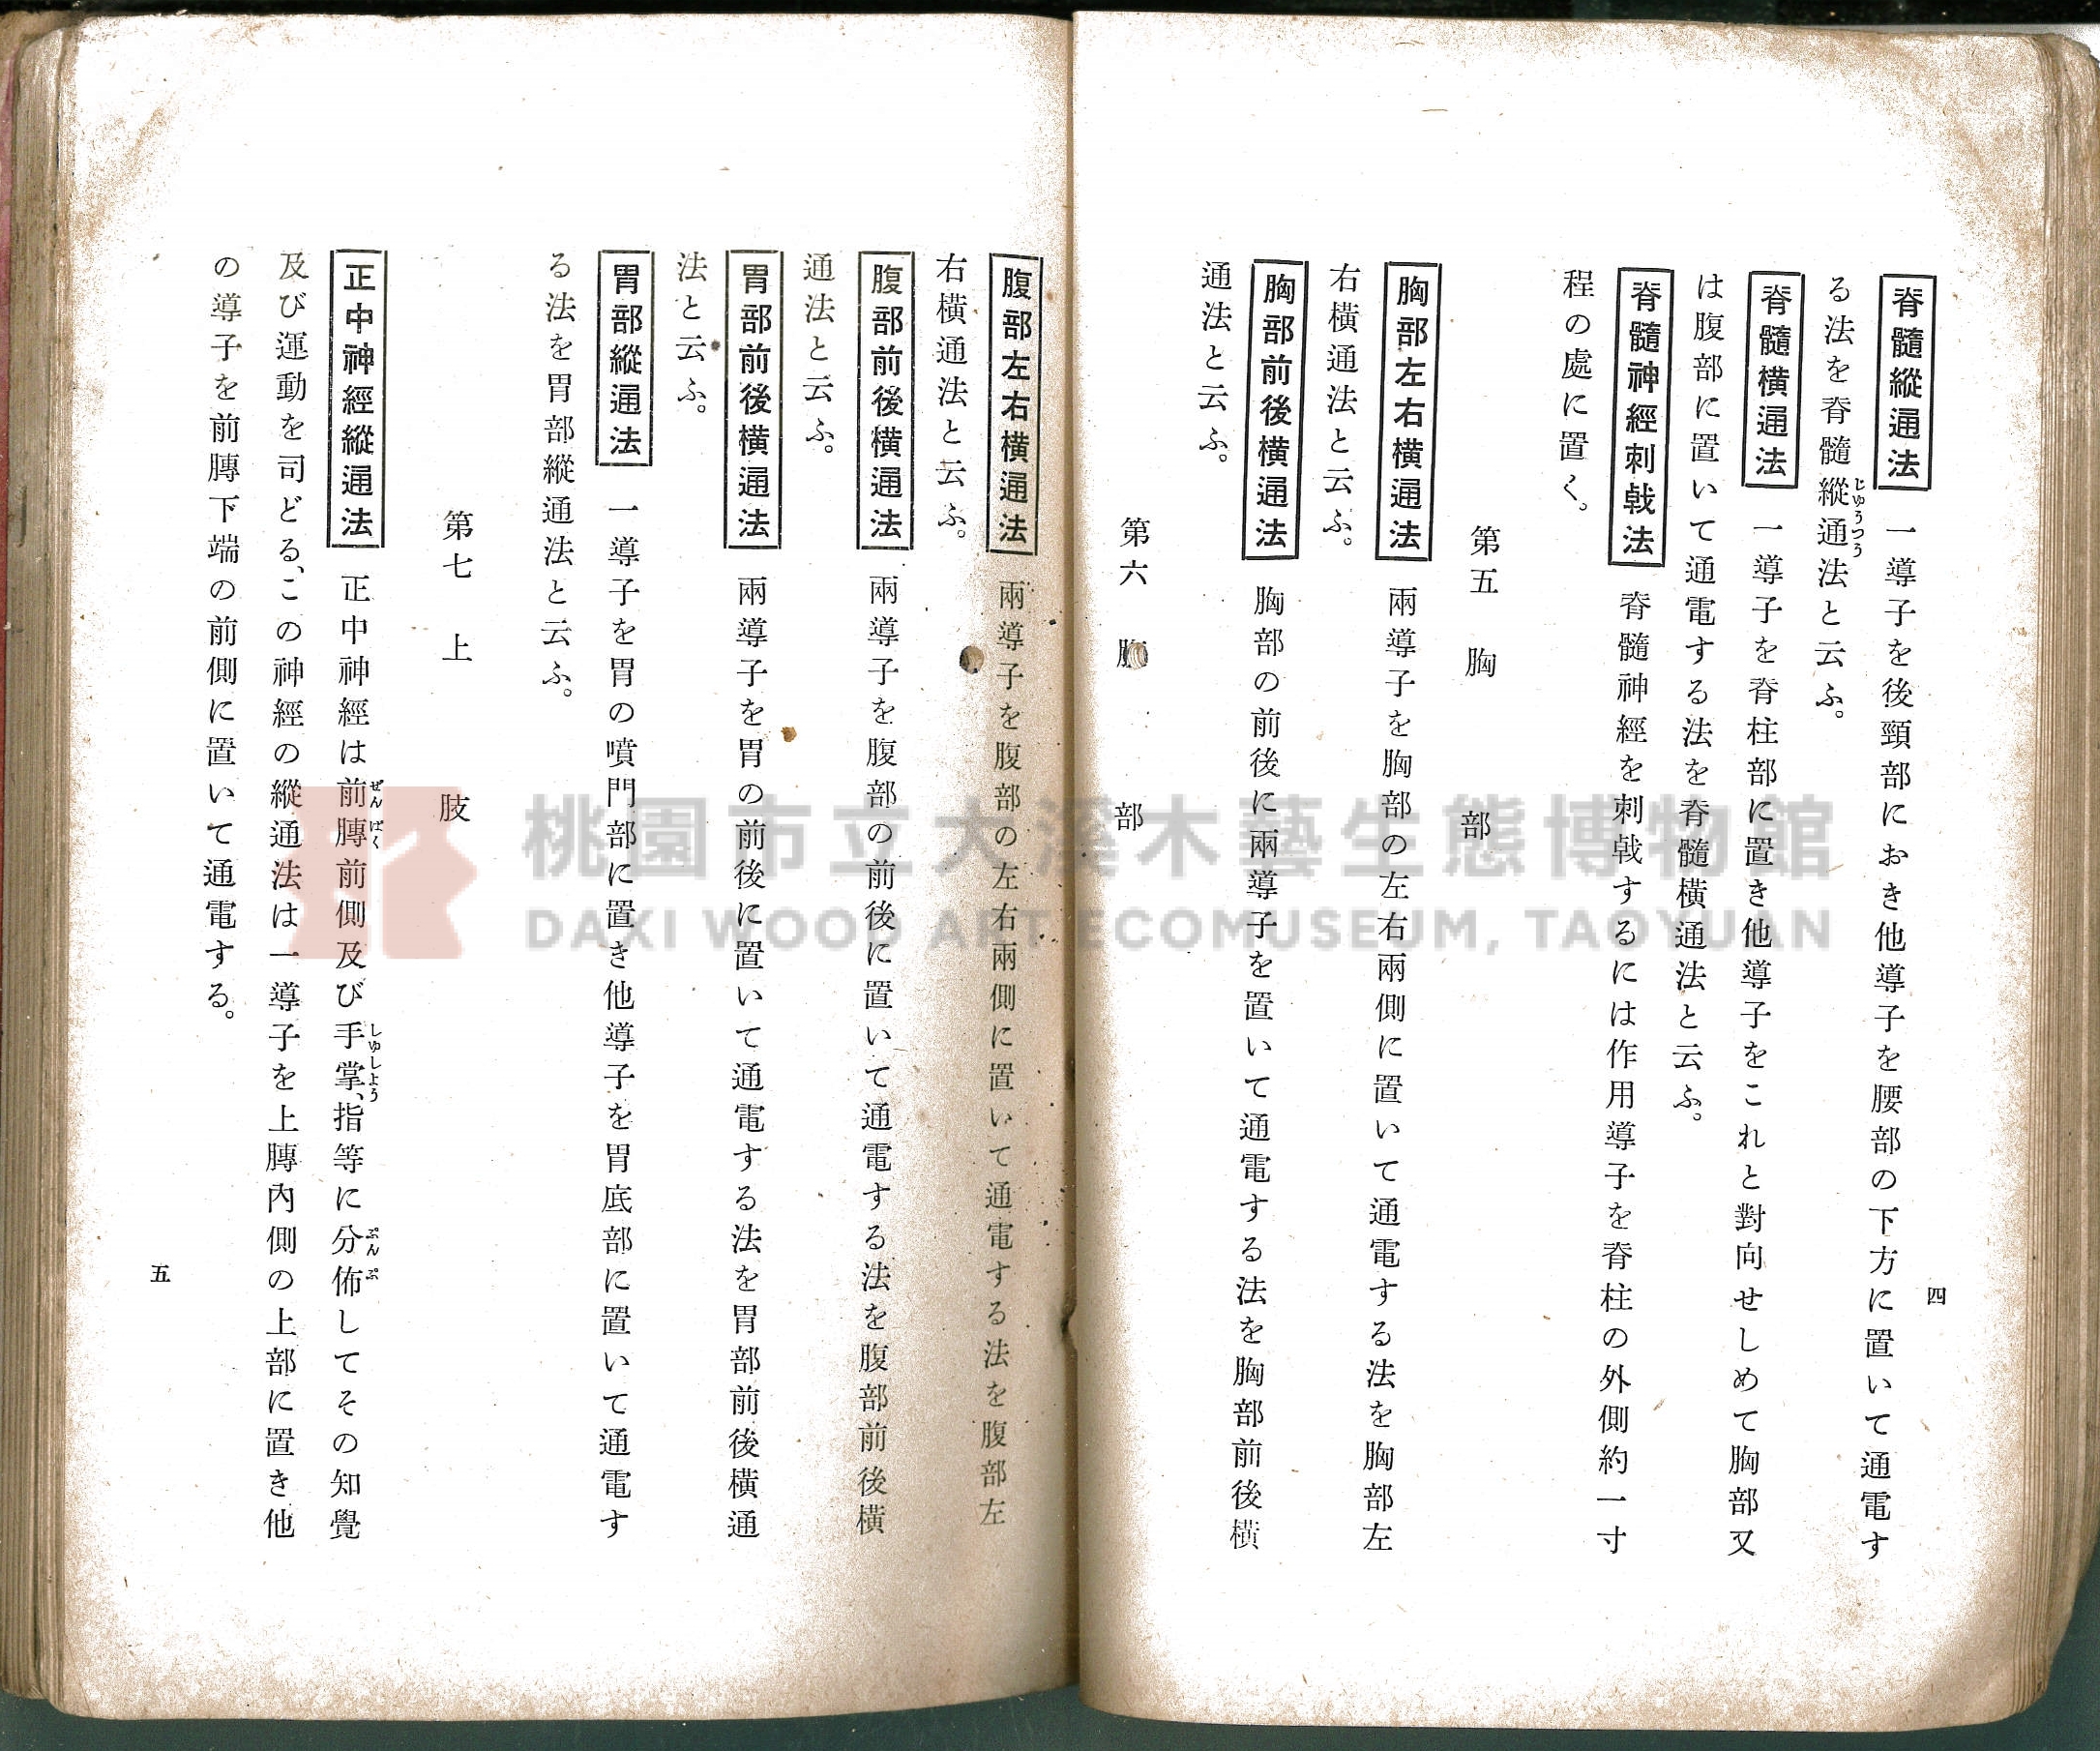 四
脊髓縱通法 一導子を後頸部におき他導子を腰部の下方に置いて通電す
る法を脊髓縱通法と云ふ。
じゆうつう
脊髓橫通法 一導子を脊柱部に置き他導子をこれと對向せしめて胸部又
は腹部に置いて通電する法を脊髓橫通法と云ふ。
脊髓神經刺戟法 脊髓神經を刺戟するには作用導子を脊柱の外側約一寸
程の處に置く。
第五 胸部
胸部左右橫通法 兩導子を胸部の左右兩側に置いて通電する法を胸部左
右橫通法と云ふ。
胸部前後橫通法 胸部の前後に兩導子を置いて通電する法を胸部前後橫
通法と云ふ。
第六 部
腹部左右橫通法 兩導子を腹部の左右兩側に置いて通電する法を腹部左
右橫通法と云ふ。
腹部前後橫通法 兩導子を腹部の前後に置いて通電する法を腹部前後橫
通法と云ふ。
胃部前後橫通法 兩導子を胃の前後に置いて通電する法を胃部前後橫通
法と云ふ。
胃部縱通法 一導子を胃の噴門部に置き他導子を胃底部に置いて通電す
る法を胃部縱通法と云ふ。
第七 上肢
正中神經縱通法 正中神經は前膊前側及び手掌、指等に分佈してその知覺
ぜんぱく しゆしよう ぶんぷ
及び運動を司どる、この神經の縱通法は一導子を上膊內側の上部に置き他
の導子を前膊下端の前側に置いて通電する。
五
桃園市立大溪木藝生態博物館
DAXI WOOD ART ECOMUSEUM, TAOYUAN